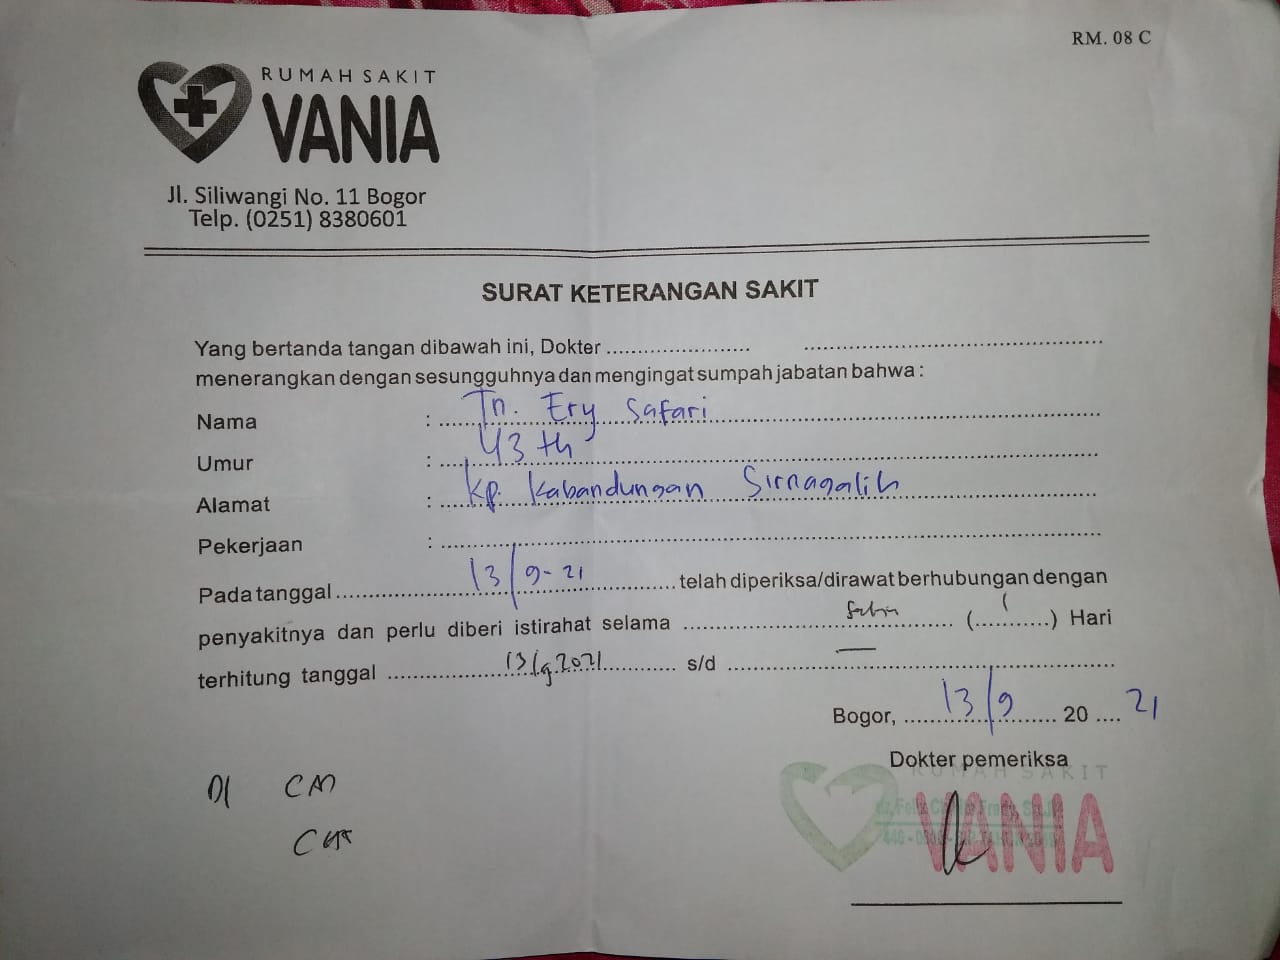 RM. 08 C
RUMAH SAKIT
VANIA
Jl. Siliwangi No. 11 Bogor
Telp. (0251) 8380601
SURAT KETERANGAN SAKIT
Yang bertanda tangan dibawah ini, Dokter ........................ ................................................
menerangkan dengan sesungguhnya dan mengingat sumpah jabatan bahwa :
Nama : Tn. Ery Safari
Umur : 43 th
Alamat : Kp. Kabandungan Sirnagalih
Pekerjaan :
Pada tanggal 13/9-21 telah diperiksa/dirawat berhubungan dengan
penyakitnya dan perlu diberi istirahat selama (............) Hari
terhitung tanggal 13/9 2021 s/d —
Bogor, 13/9 20 .... 21
Dokter pemeriksa
RUMAH SAKIT
VANIA